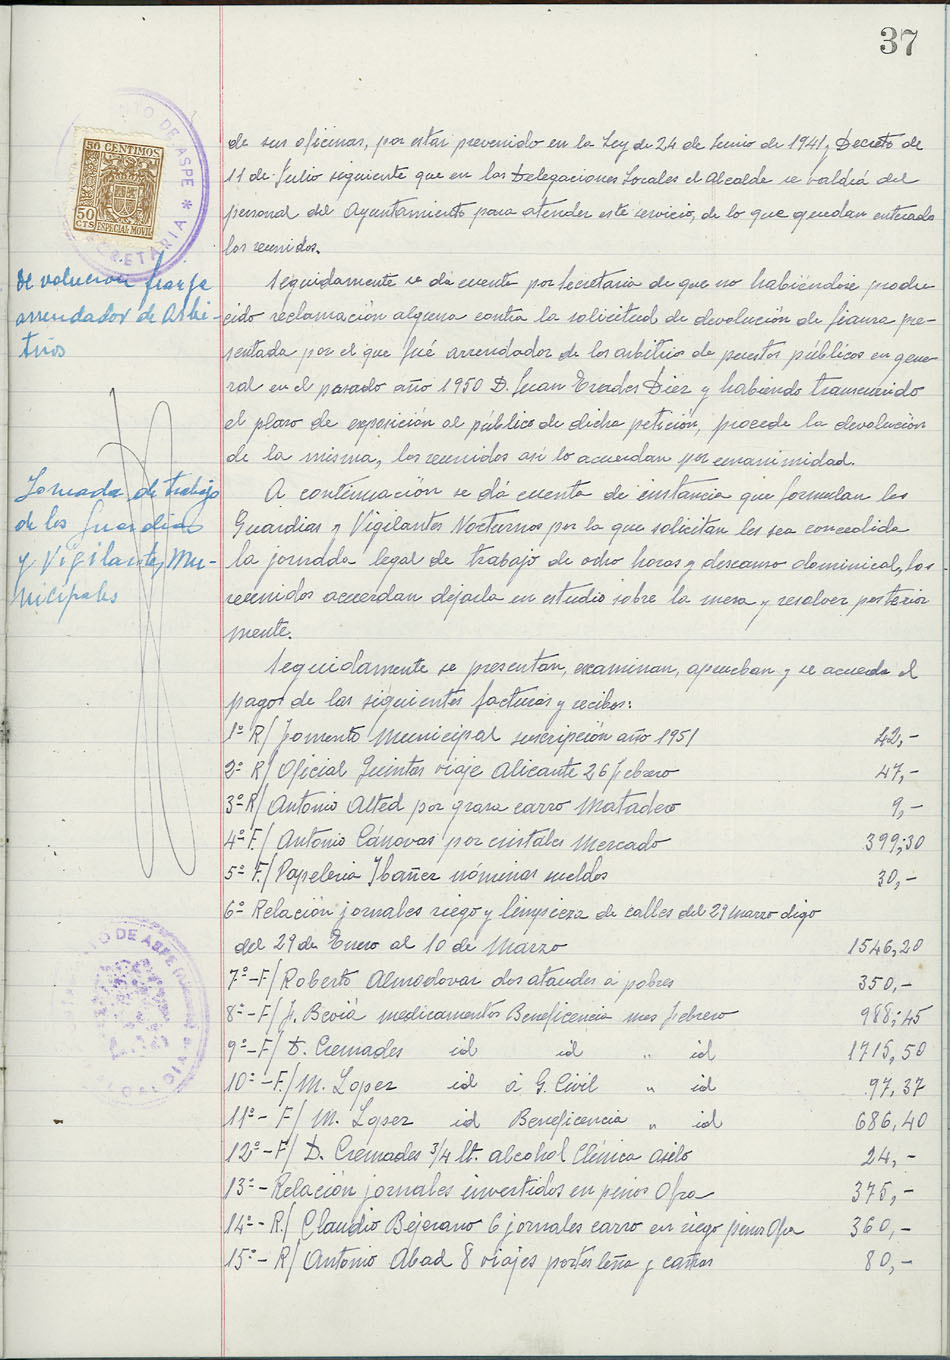 37
AYUNTAMIENTO DE ASPE * SECRETARIA *
50 CENTIMOS
50 CTS ESPECIAL MOVIL
de sus oficinas, por estar prevenido en la Ley de 24 de Junio de 1941 y Decreto de
11 de Julio siguiente que en las Delegaciones Locales el Alcalde se valdrá del
personal del Ayuntamiento para atender este servicio, de lo que quedan enterados
los reunidos.
Devolución fianza
arrendador de Arbi-
trios
Seguidamente se dá cuenta por Secretaria de que no habiéndose produ
cido reclamación alguna contra la solicitud de devolución de fianza pre-
sentada por el que fué arrendador de los arbitrios de puestos públicos en gene
ral en el pasado año 1950 D. Juan Erades Diez y habiendo transcurrido
el plazo de exposición al público de dicha petición, procede la devolución
de la misma, los reunidos asi lo acuerdan por unanimidad.
Jornada de trabajo
de los Guardias
y Vigilantes Mu-
nicipales
A continuación se dá cuenta de instancia que formulan los
Guardias y Vigilantes Nocturnos por la que solicitan les sea concedida
la jornada legal de trabajo de ocho horas y descanso dominical, los
reunidos acuerdan dejarla en estudio sobre la mesa y resolver posterior
mente.
Seguidamente se presentan, examinan, aprueban y se acuerda el
pago de las siguientes facturas y recibos:
1º R/ Fomento Municipal suscripción año 1951 42,-
2º R/ Oficial Quintas viaje Alicante 26 febrero 47,-
3º R/ Antonio Alted por grasa carro Matadero 9,-
4º F/ Antonio Cánovas por cristales Mercado 399,30
5º F./ Papeleria Ibañez nóminas sueldos 30,-
6º Relación jornales riego y limpieza de calles del 29 marzo digo
del 29 de Enero al 10 de Marzo 1546,20
7º-F/ Roberto Almodovar dos ataudes a pobres 350,-
8º-F/ J. Beviá medicamentos Beneficencia mes febrero 988,45
9º-F/ D. Cremades id id " id 1715,50
10º-F./ M. Lopez id á G. Civil " id 97,37
11º-F/ M. Lopez id Beneficencia " id 686,40
12º-F/ D. Cremades 3/4 lt. alcohol Clínica asilo 24,-
13º-Relación jornales invertidos en pinos Ofra 375,-
14º-R./ Claudio Bejerano 6 jornales carro en riego pinos Ofra 360,-
15º-R/ Antonio Abad 8 viajes portes leña y cañas 80,-